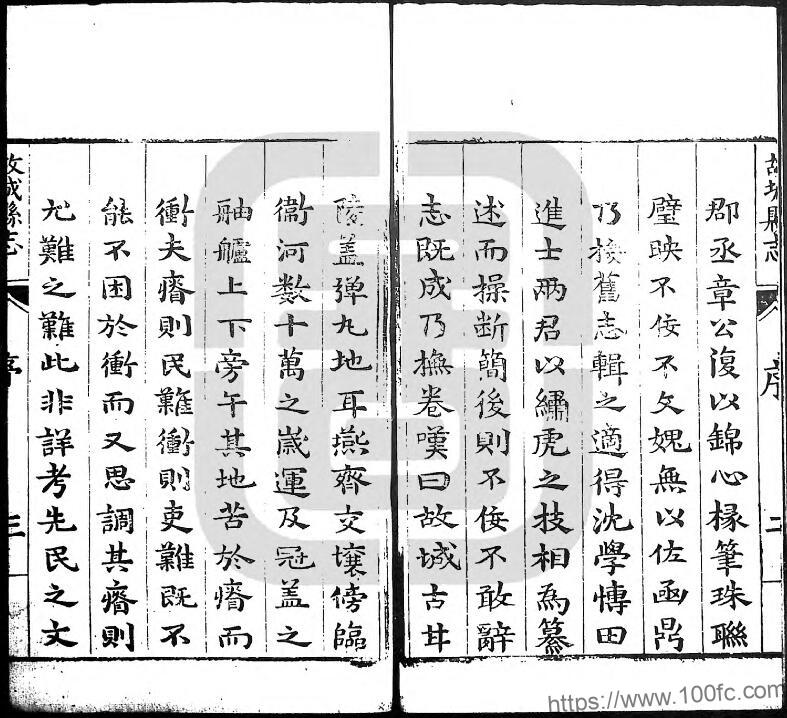 故城縣志
序
二
郡丞章公復以錦心椽筆珠聯
璧映不佞不文媿無以佐函鼎
乃按舊志輯之適得沈學博田
進士兩君以繡虎之技相為纂
述而操断簡後則不佞不敢辭
志既成乃撫卷嘆曰故城古甘
陵蓋弹丸地耳燕齊交壤傍臨
衞河数十萬之歲運及冠盖之
舳艫上下旁午其地苦於瘠而
衝夫瘠則民難衝則吏難既不
能不困於衝而又思調其瘠則
尤難之難此非詳考先民之文
故城縣志
序
三
https://www.100fc.com